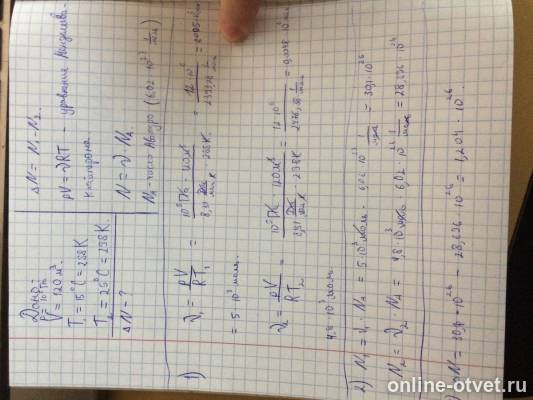 Дано:
P=10⁵Па
V = 120 м³.
T₁ = 15°C = 288 К
T₂ = 25°C = 298 К.
ΔN - ?
ΔN = N₁ - N₂.
pV = νRT - уравнение Менделеева-
Клапейрона
N = ν · Nₐ
Nₐ - число Авогадро (6,02 · 10²³ 1/моль)
1) ν₁ = pV/RT₁ = 10⁵Па · 120м³ / 8,31 · 288К = 12·10⁶ /
= 5 · 10³ моль.
ν₂ = pV/RT₂ = 10⁵Па · 120м³ / 8,31 · 298К = 12·10⁶ /
4,8 · 10³ моль.
2) N₁ = ν₁ · Nₐ = 5·10³ моль · 6,02 · 10²³ 1/моль = 30,1 · 10²⁶
N₂ = ν₂ · Nₐ = 4,8 · 10³ моль · 6,02 · 10²³ 1/моль = 28,896 · 10²⁶
N = 30,1 · 10²⁶ - 28,896 · 10²⁶ = 1,204 · 10²⁶.
online-otvet.ru